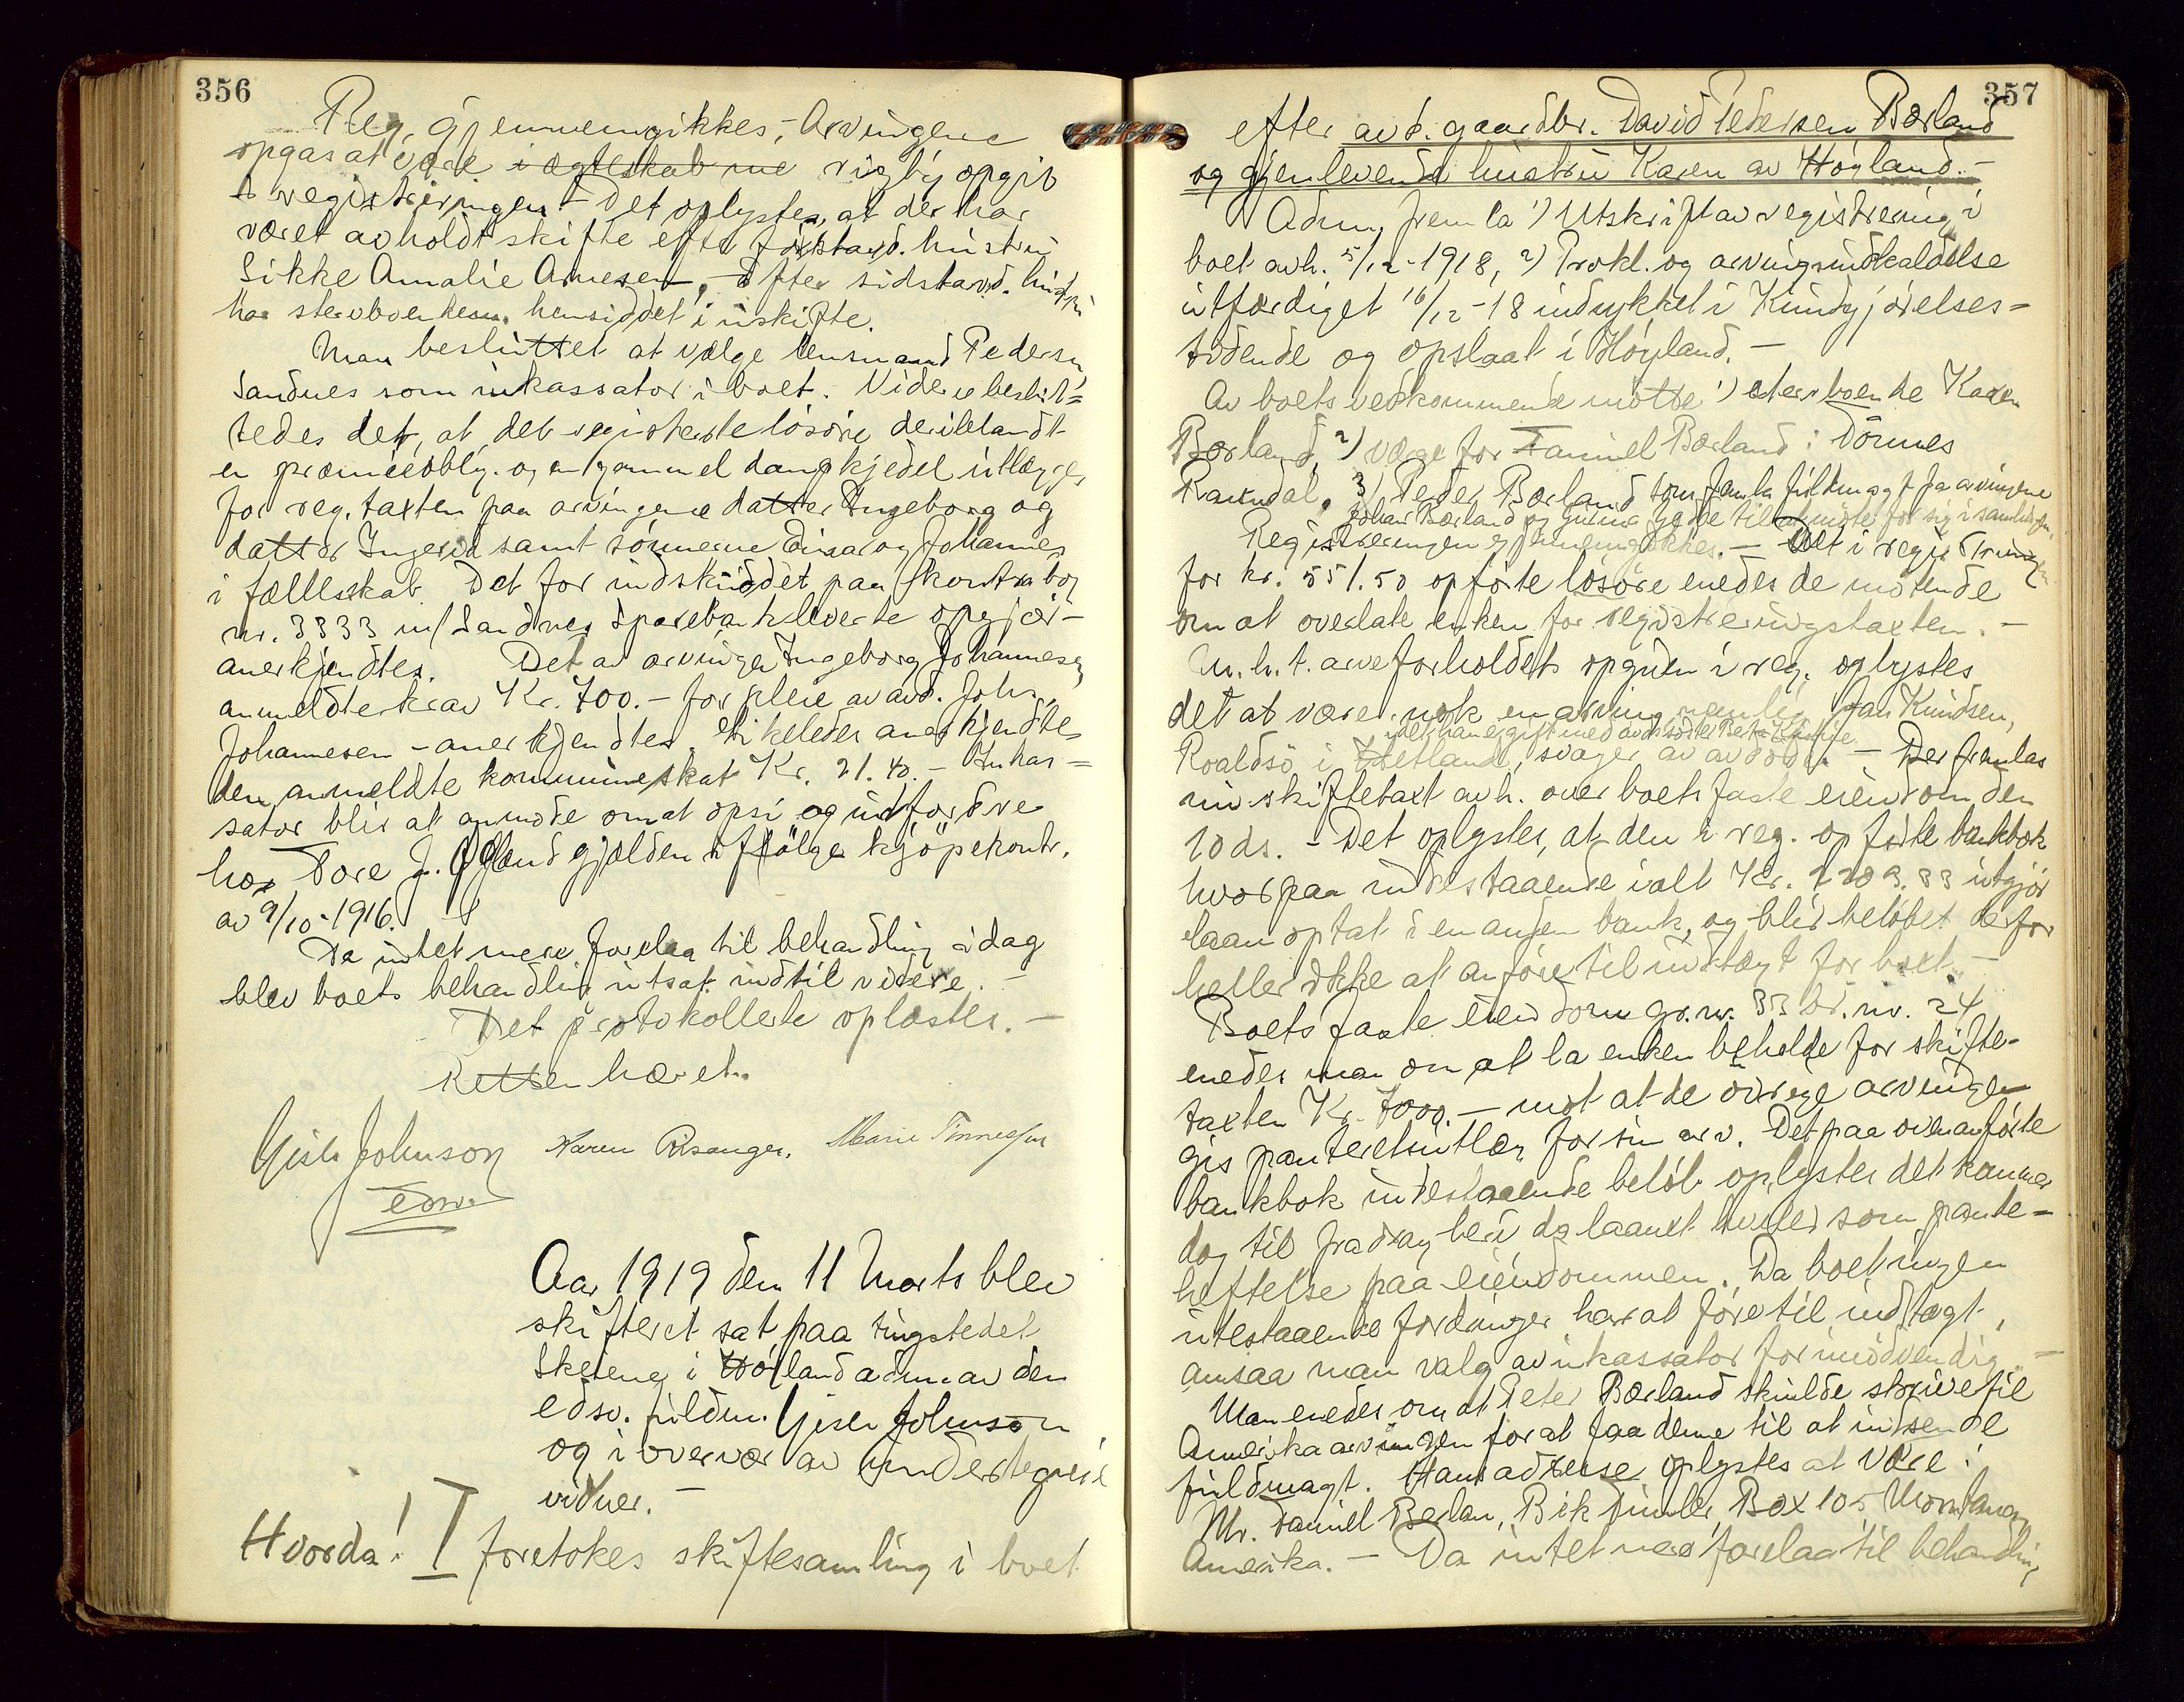 356
Reg. gjennemgikkes, - Arvingene
opgas at være i ægteskab me rigtig opgit
i registreringen. - Det oplystes, at der har
været avholdt skifte efter førstavd. hustru
Sikke Amalie Arnesen, - Efter sidstavd. hustru
har stervboenken hensiddet i uskifte.
Man besluttet at vælge lensmand Pedersen,
Sandnes som inkassator i boet. Videre beslut=
tedes det, at det registrerte løsøre deriblandt
en præmieoblig. og en gammel dampkjedel utlægges
for reg. taxten paa arvingene datter Ingeborg og
datter Ingerid samt sønnerne Einar og Johannes
i fællesskab. Det for indskuddet paa kontrabog
nr. 3333 m/ Sandnes Sparebank leverte opgjør -
anerkjendtes. Det av arvingen Ingeborg Johannesen
anmeldte krav Kr. 700.- for pleie av avd. Johs.
Johannesen - anerkjendtes. Likeledes anerkjendtes
den anmeldte kommuneskat Kr. 21.40. - Inkas=
sator blir at anmode om at opsi og indfordre
hos Tore J. Øglend gjælden ifølge kjøpekontr.
av 9/10-1916.
Da intet mere forelaa til behandling idag
blev boets behandling utsat indtil videre. -
Det protokollerte oplæstes. -
Retten hævet.
Gisle Johnson Karen Risanger. Marie Tønnesen
edsv.
Aar 1919 den 11 Marts blev
skifteret sat paa tingstedet
Skeiene i Høyland adm. av den
edsv. fuldm. Gisle Johnson
og i overvær av undertegnede
vidner. -
Hvorda! I foretokes skiftesamling i boet
357
efter avd. gaardbr. David Pedersen Bærland
og gjenlevende hustru Karen av Høyland. -
Adm. fremla 1) Utskrift av registrering i
boet avh. 5/12-1918, 2) Prokl. og arvingsindkaldelse
utfærdiget 16/12-18 indrykket i Kundgjørelses=
tidende og opslaat i Høyland. -
Av boets vedkommende møtte 1) stervboende Karen
Bærland, 2) værge for Daniel Bærland: Tønnes
3) Peder Bærland som fremla fuldmagt fra arvingene
Johan Bærland og Gurine Gjesse til at møte for sig i samlingen.
Registreringen gjennemgikkes. - Det i registreringen
for kr. 551.50 opførte løsøre enedes de møtende
om at overlate enken for registreringstaxten. -
M.h.t. arveforholdets opgiven i reg. oplystes
det at være nok en arving nemlig Jan Knudsen,
idet han er gift med avdødes søster Berta Karine
Roaldsø i Hetland, svager av avdøde. - Der fremlas
ny skiftetaxt avh. over boets faste eiendom den
10 ds. - Det oplystes, at den i reg. opførte bankbok
hvorpaa indestaaende ialt Kr. 1209.33 utgjør
laan optat i en anden bank, og blir beløbet derfor
heller ikke at anføre til indtægt for boet. -
Boets faste eiendom gr.nr. 33 br.nr. 24
enedes man om at la enken beholde for skifte-
taxten Kr. 7000.- mot at de øvrige arvinger
gis panteretsutlæg for sin arv. Det paa ovenanførte
bankbok indestaaende beløb oplystes det kommer
dog til fradrag heri da laanet hviler som pante=
heftelse paa eiendommen. Da boet ingen
utestaaende fordringer har at føre til indtægt,
ansaa man valg av inkassator for unødvendig. -
Man enedes om at Peter Bærland skulde skrive til
Amerikaarvingen for at faa denne til at indsende
fuldmagt. Hans adresse oplystes at være:
Mr. Daniel Berlan, Bik Timber, Box 105, Montana,
Amerika. - Da intet mere forelaa til behandling